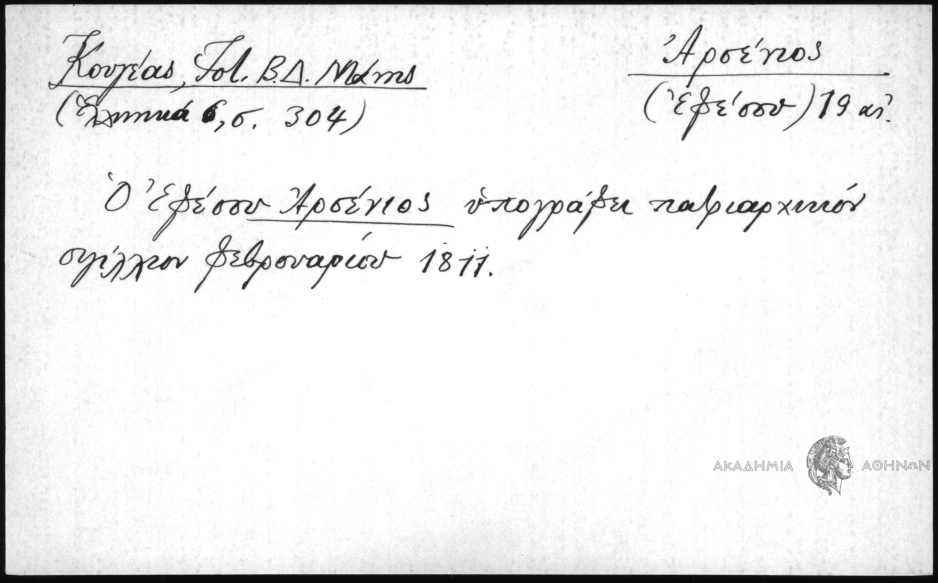 Κουγέας, Ἱστ. Β.Δ. Μάνης
(Ἑλληνικά 6, σ. 304)
Ἀρσένιος
(Ἐφέσου) 19 αἰ.
Ὁ Ἐφέσου Ἀρσένιος ὑπογράφει πατριαρχικόν
σιγίλλιον φεβρουαρίου 1811.
ΑΚΑΔΗΜΙΑ ΑΘΗΝΩΝ